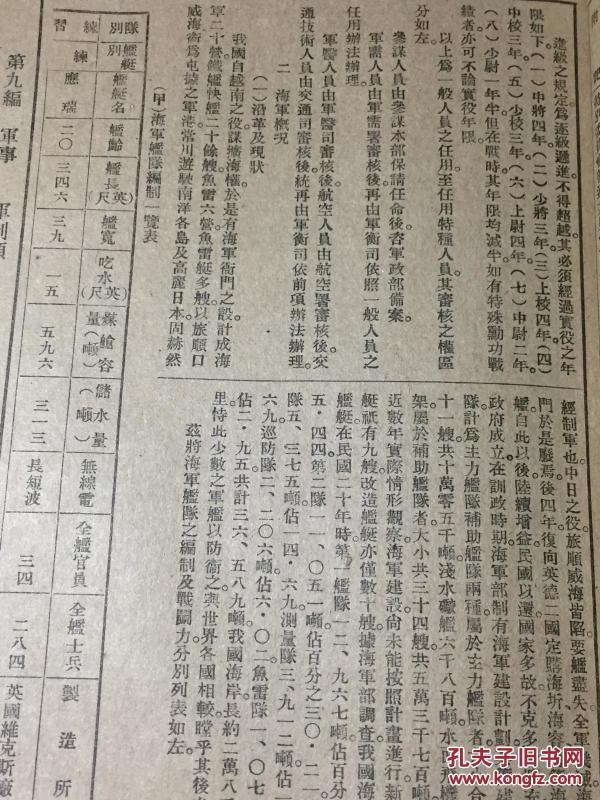 進級之規定爲逐級遞進不得超越其必須經過實役之年
限如下。(一)中將四年(二)少將三年(三)上校四年(四)
中校三年(五)少校三年(六)上尉四年(七)中尉二年
(八)少尉一年半但在戰時其年限均減半如有特殊勳功戰
績者亦可不論實役年限
以上爲一般人員之任用至任用特種人員其審核之權區
分如左
參謀人員由參謀本部保請任命後咨軍政部備案
軍需人員由軍需署審核後再由軍衡司依照一般人員之
任用辦法辦理
軍醫人員由軍醫司審核後航空人員由航空署審核後交
通技術人員由交通司審核後統再由軍衡司依前項辦法辦理
二 海軍概況
(一)沿革及現狀
我國自越南之役謀擴海權於是有海軍衙門之設計成海
軍二十營鐵艦快艦二十餘艘魚雷六營魚雷艇多艘以旅順口
威海衛爲屯據之軍港常川遊駛南洋各島及高麗日本固赫然
經制軍也中日之役旅順威海皆陷要艦盡失全軍
門於是廢焉後四年復向英德二國定購海圻海容
艦自此以後陸續增益民國以還國家多故不克多
政府成立在訓政時期海軍部制有海軍建設計劃
隊計爲主力艦隊補助艦隊兩種屬於主力艦隊者
十一艘共十萬零五千噸淺水礮艦六千八百噸水
架屬於補助艦隊者大小共三十四艘共五萬三千七百噸
近數年實際情形觀察海軍建設尙未能按照計畫進行新
艇祇有九艘改造艦艇亦僅數十艘據海軍部調查我國海
艦艇在民國二十年時第一艦隊一二、九六七噸佔百分
五·四四第二隊一一、〇五一噸佔百分之三〇·二一
隊五、三七五噸佔一四·六九測量隊三、九一二噸佔一
六九巡防隊二、二〇六噸佔六·〇二魚雷隊一、〇七
佔二·九五共計三六、五八九噸我國海岸長約二萬八千
里恃此少數之軍艦以防衞之與世界各國相較瞠乎其後
茲將海軍艦隊之編制及戰鬭力分別列表如左
(甲)海軍艦隊編制一覽表
隊別 艦艇別 艦艇名 艦齡 艦長(英尺) 艦寬 吃水(英尺) 煤艙容量(噸) 儲水量(噸) 無線電 全艦官員 全艦士兵 製造所
練習 練 應瑞 二〇 三四六 三九 一五 五九六 三一三 長短波 三四 二八四 英國維克斯廠
第九編 軍事